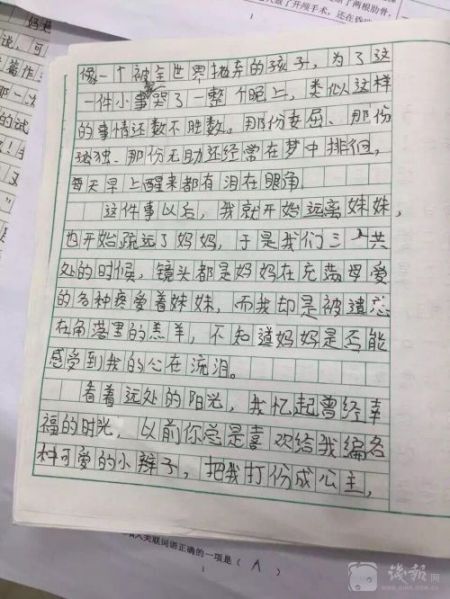 了两根肋骨，
了开颅手术，还在
像一个被全世界抛弃的孩子，为了这
一件小事哭了一整个晚上，类似这样
的事情还数不胜数。那份委屈、那份
孤独、那份无助还经常在梦中徘徊，
每天早上醒来都有泪在眼角。
这件事以后，我就开始远离妹妹，
也开始疏远了妈妈，于是我们三人共
处的时候，镜头都是妈妈在充满母爱
的各种疼爱着妹妹，而我却是被遗忘
在角落里的羔羊，不知道妈妈是否能
感受到我的心在流泪。
看着远处的阳光，我忆起曾经幸
福的时光，以前你总是喜欢给我编各
种可爱的小辫子，把我打份成公主，
关联词语正确的一项是（ A ）
钱报网